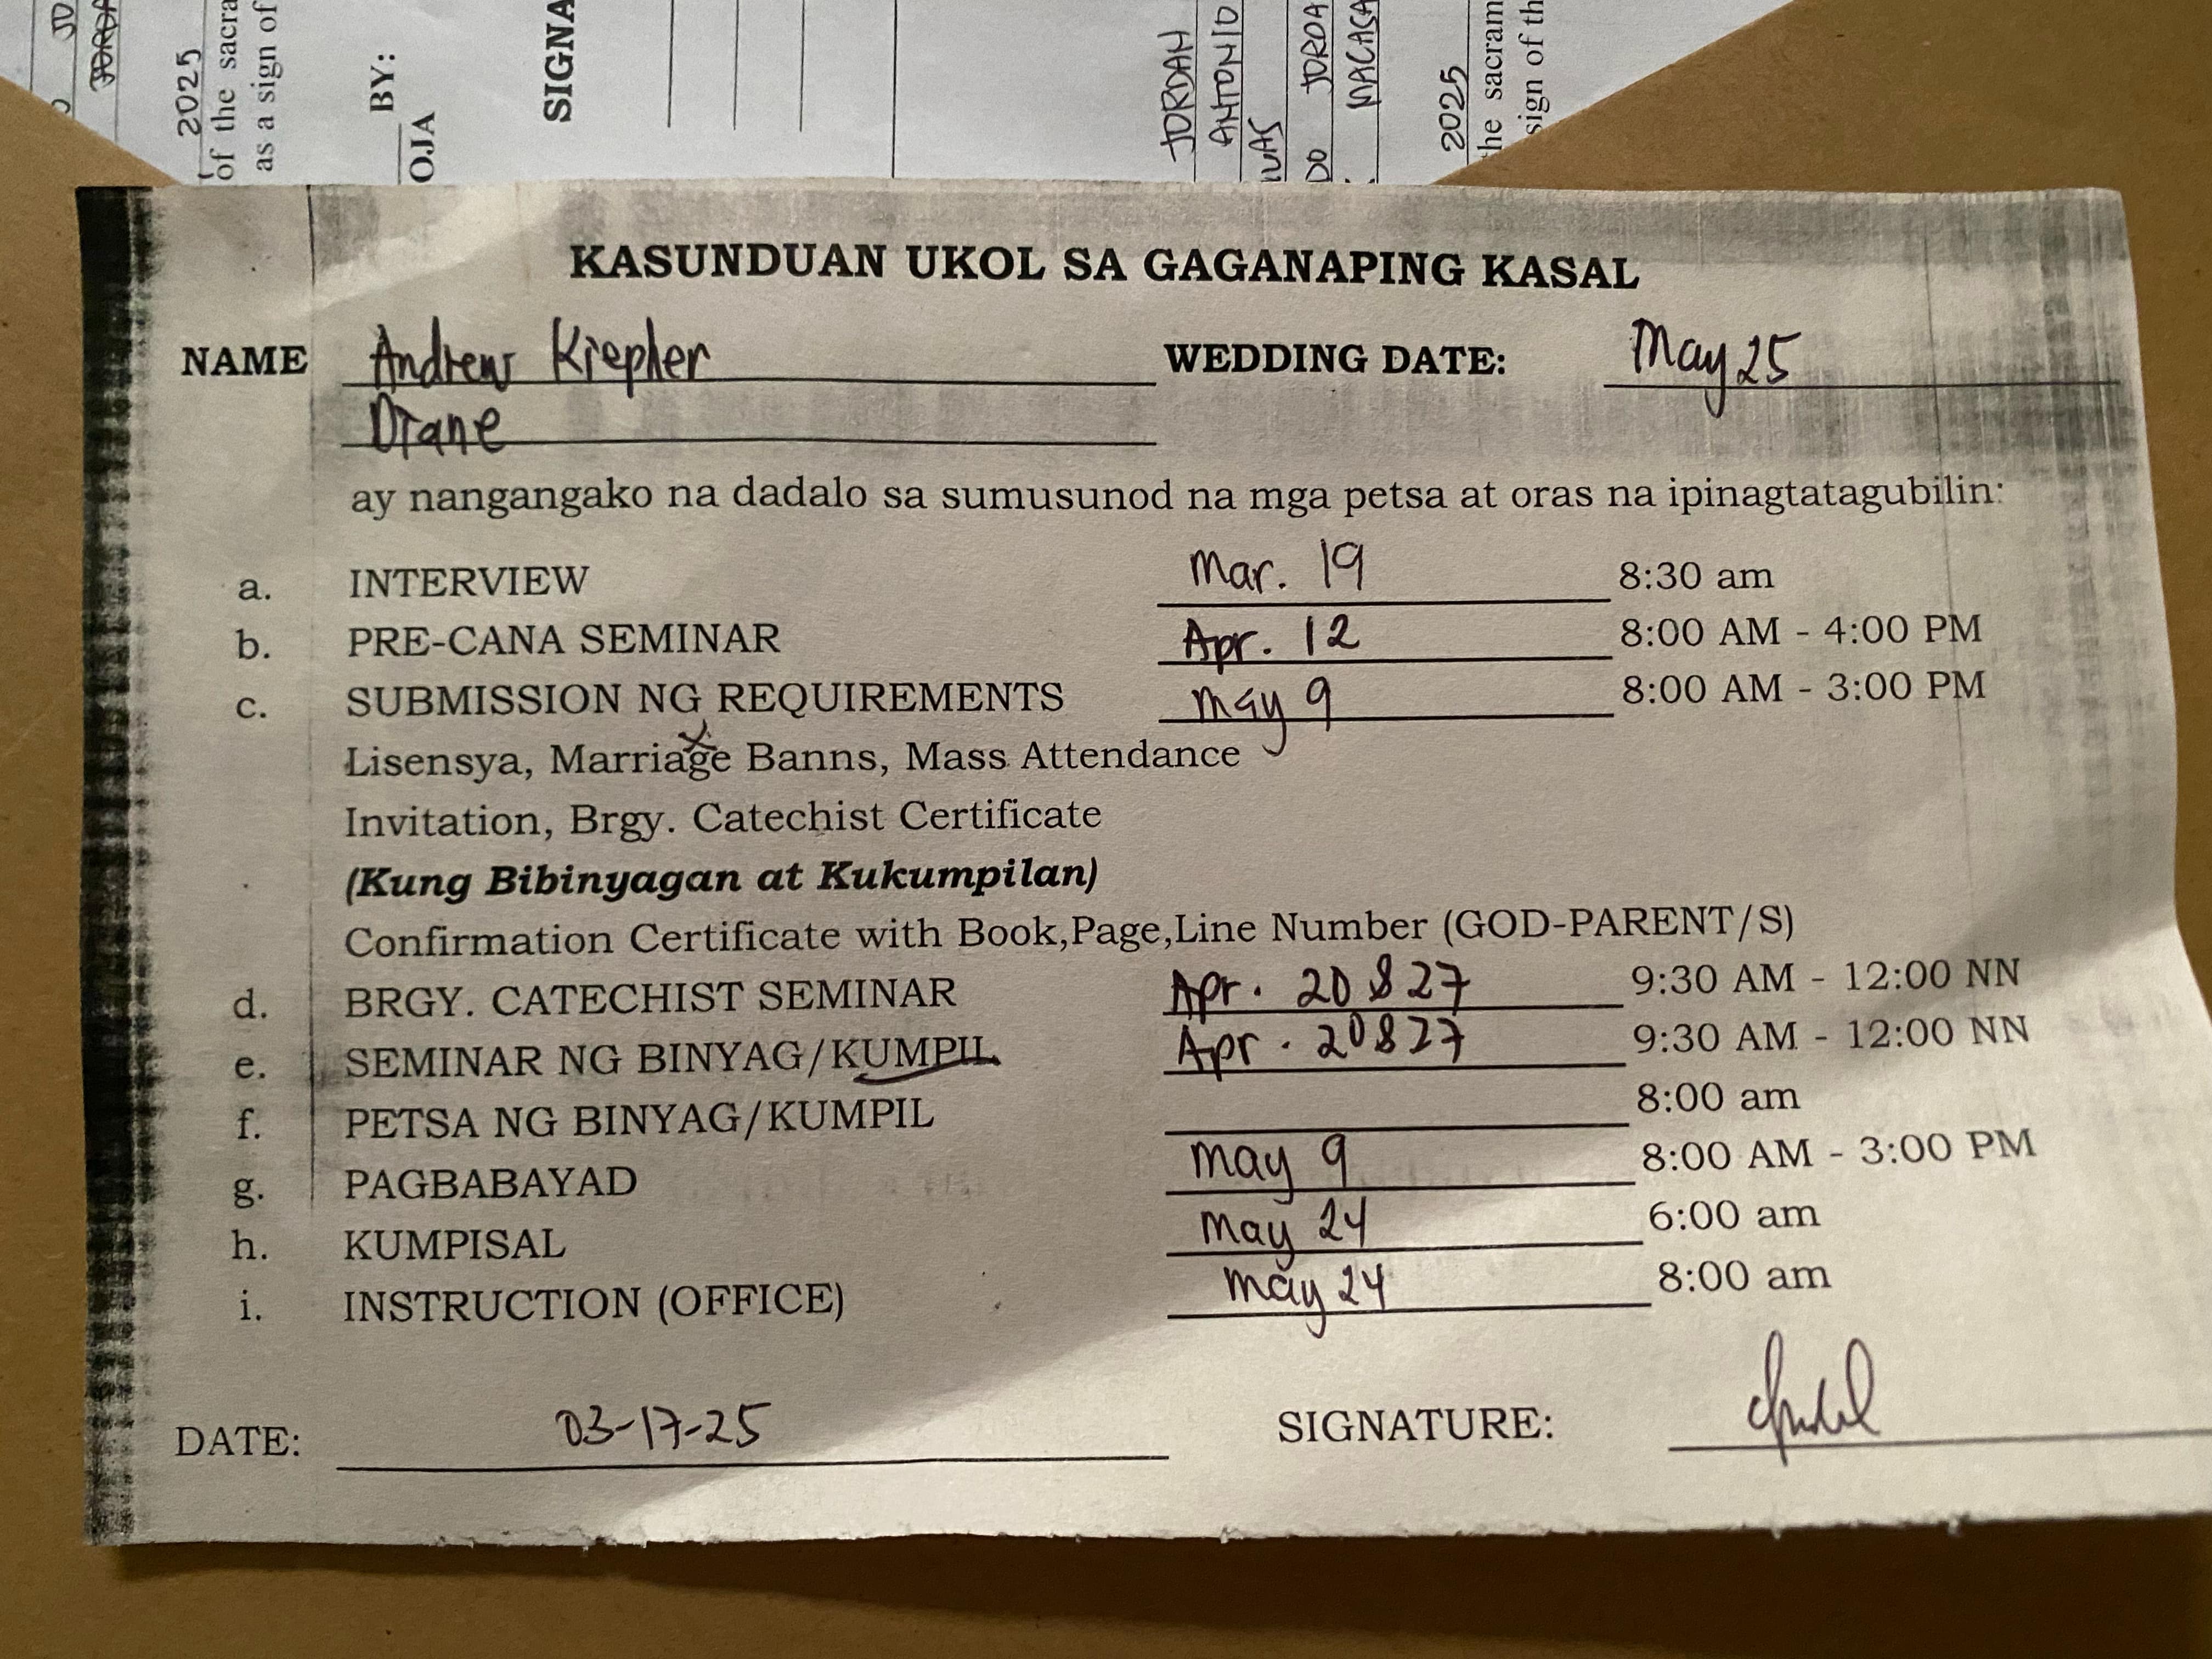 JORDAN
ANTONIO
JORDA
MACAGA
2025
2025
of the sacra
as a sign of
the sacram
sign of th
BY:
OJA
SIGNA
KASUNDUAN UKOL SA GAGANAPING KASAL
NAME Andrew Kiepher WEDDING DATE: May 25
Diane
ay nangangako na dadalo sa sumusunod na mga petsa at oras na ipinagtatagubilin:
a. INTERVIEW Mar. 19 8:30 am
b. PRE-CANA SEMINAR Apr. 12 8:00 AM - 4:00 PM
c. SUBMISSION NG REQUIREMENTS May 9 8:00 AM - 3:00 PM
Lisensya, Marriage Banns, Mass Attendance
Invitation, Brgy. Catechist Certificate
(Kung Bibinyagan at Kukumpilan)
Confirmation Certificate with Book,Page,Line Number (GOD-PARENT/S)
d. BRGY. CATECHIST SEMINAR Apr. 20 & 27 9:30 AM - 12:00 NN
e. SEMINAR NG BINYAG/KUMPIL Apr. 20 & 27 9:30 AM - 12:00 NN
f. PETSA NG BINYAG/KUMPIL 8:00 am
g. PAGBABAYAD May 9 8:00 AM - 3:00 PM
h. KUMPISAL May 24 6:00 am
i. INSTRUCTION (OFFICE) May 24 8:00 am
DATE: 03-17-25 SIGNATURE: